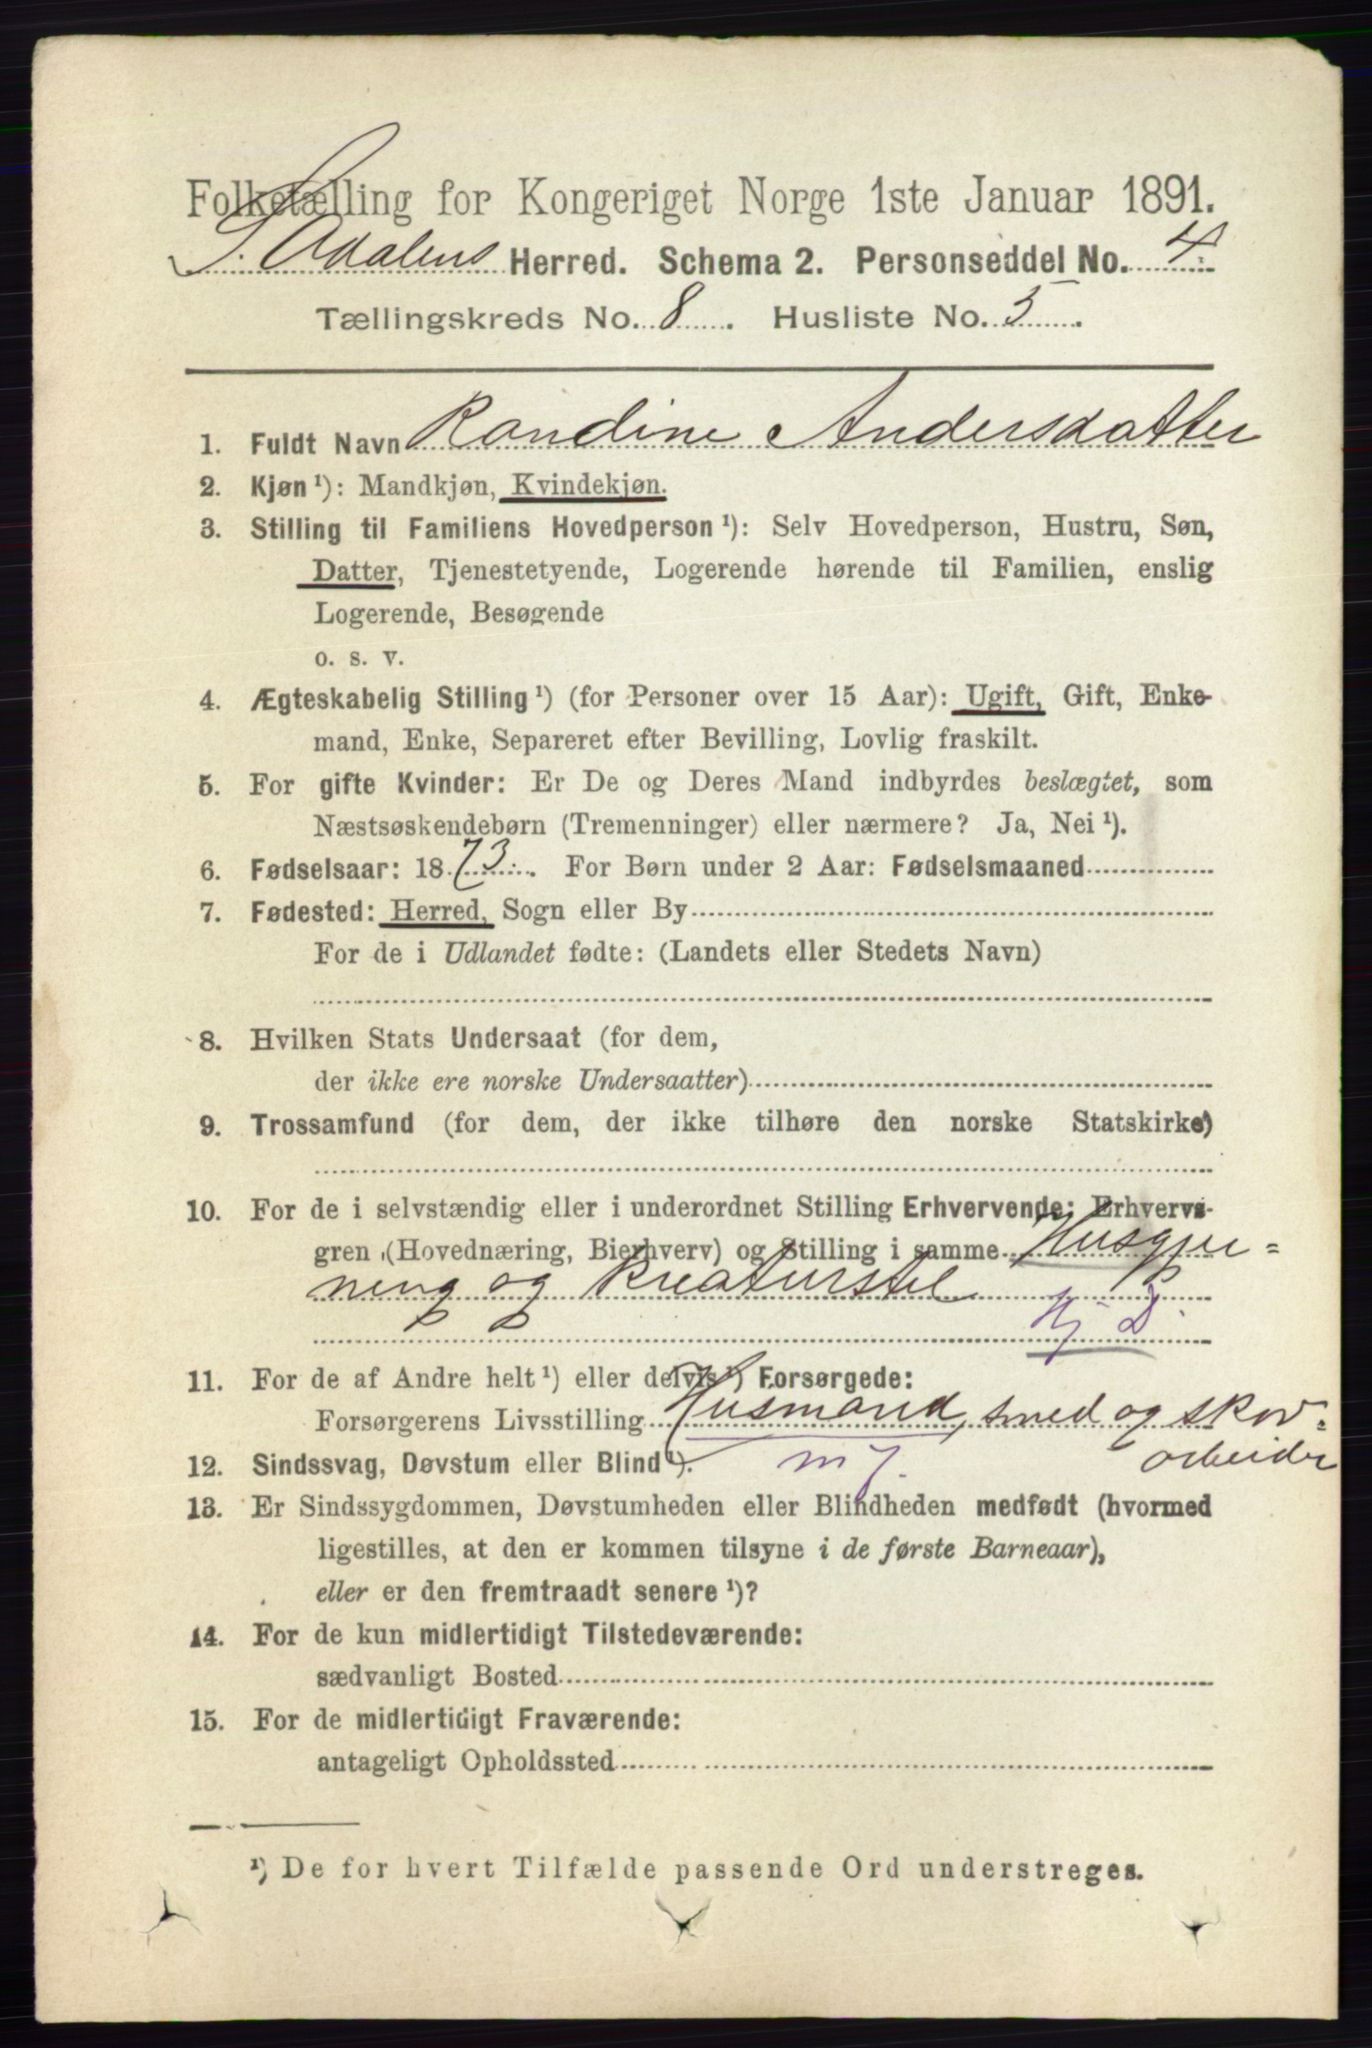 Folketælling for Kongeriget Norge 1ste Januar 1891.
S. Adalens Herred. Schema 2. Personseddel No. 4.
Tællingskreds No. 8. Husliste No. 5.
1. Fuldt Navn Randine Andersdatter
2. Kjøn¹): Mandkjøn, Kvindekjøn.
3. Stilling til Familiens Hovedperson¹): Selv Hovedperson, Hustru, Søn,
Datter, Tjenestetyende, Logerende hørende til Familien, enslig
Logerende, Besøgende
o. s. v.
4. Ægteskabelig Stilling¹) (for Personer over 15 Aar): Ugift, Gift, Enke-
mand, Enke, Separeret efter Bevilling, Lovlig fraskilt.
5. For gifte Kvinder: Er De og Deres Mand indbyrdes beslægtet, som
Næstsøskendebørn (Tremenninger) eller nærmere? Ja, Nei¹).
6. Fødselsaar: 1873. For Børn under 2 Aar: Fødselsmaaned
7. Fødested: Herred, Sogn eller By
For de i Udlandet fødte: (Landets eller Stedets Navn)
8. Hvilken Stats Undersaat (for dem,
der ikke ere norske Undersaatter)
9. Trossamfund (for dem, der ikke tilhøre den norske Statskirke)
10. For de i selvstændig eller i underordnet Stilling Erhvervende: Erhvervs-
gren (Hovednæring, Bierhverv) og Stilling i samme Husgjer=
ning og Kreaturstel
Hj D.
11. For de af Andre helt¹) eller delvis¹) Forsørgede:
Forsørgerens Livsstilling Husmand, smed og skov=
arbeider
12. Sindssvag, Døvstum eller Blind¹). m j.
13. Er Sindssygdommen, Døvstumheden eller Blindheden medfødt (hvormed
ligestilles, at den er kommen tilsyne i de første Barneaar),
eller er den fremtraadt senere¹)?
14. For de kun midlertidigt Tilstedeværende:
sædvanligt Bosted
15. For de midlertidigt Fraværende:
antageligt Opholdssted
¹) De for hvert Tilfælde passende Ord understreges.